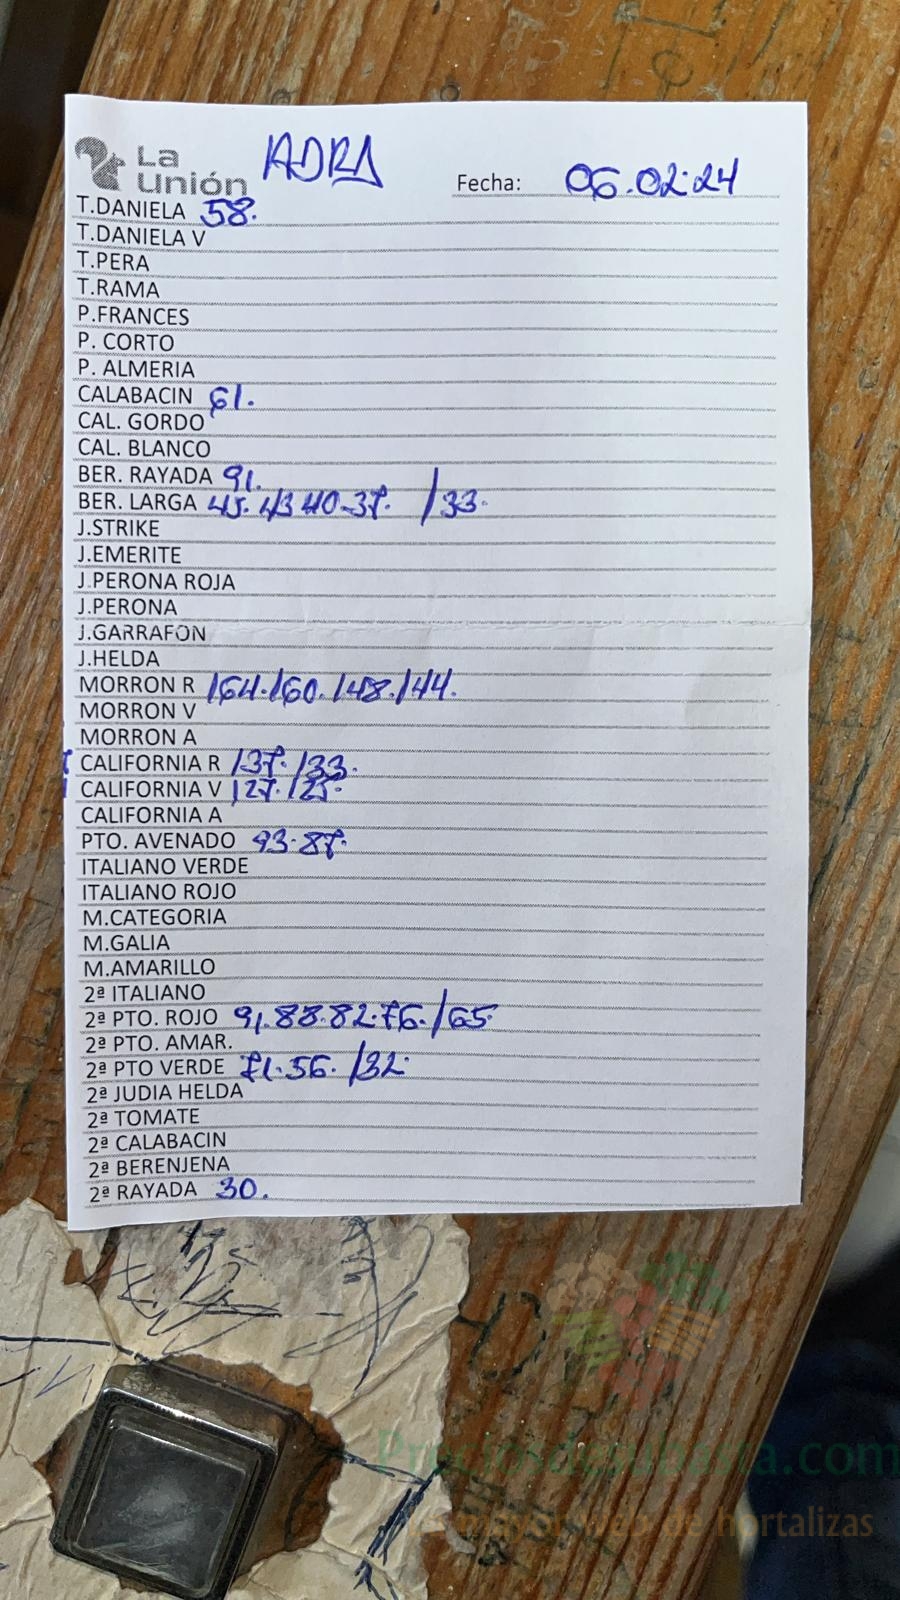 La Unión ADRA Fecha: 06.02.24
T.DANIELA 58.
T.DANIELA V
T.PERA
T.RAMA
P.FRANCES
P. CORTO
P. ALMERIA
CALABACIN 61.
CAL. GORDO
CAL. BLANCO
BER. RAYADA 91.
BER. LARGA 45. 43 40.37. /33.
J.STRIKE
J.EMERITE
J.PERONA ROJA
J.PERONA
J.GARRAFON
J.HELDA
MORRON R 164.160.148.144.
MORRON V
MORRON A
CALIFORNIA R 137.133.
CALIFORNIA V 127.125.
CALIFORNIA A
PTO. AVENADO 93.87.
ITALIANO VERDE
ITALIANO ROJO
M.CATEGORIA
M.GALIA
M.AMARILLO
2ª ITALIANO
2ª PTO. ROJO 91.88.82.76./65
2ª PTO. AMAR.
2ª PTO VERDE 71.56. /32.
2ª JUDIA HELDA
2ª TOMATE
2ª CALABACIN
2ª BERENJENA
2ª RAYADA 30.
Preciosdesubasta.com
La mayor web de hortalizas